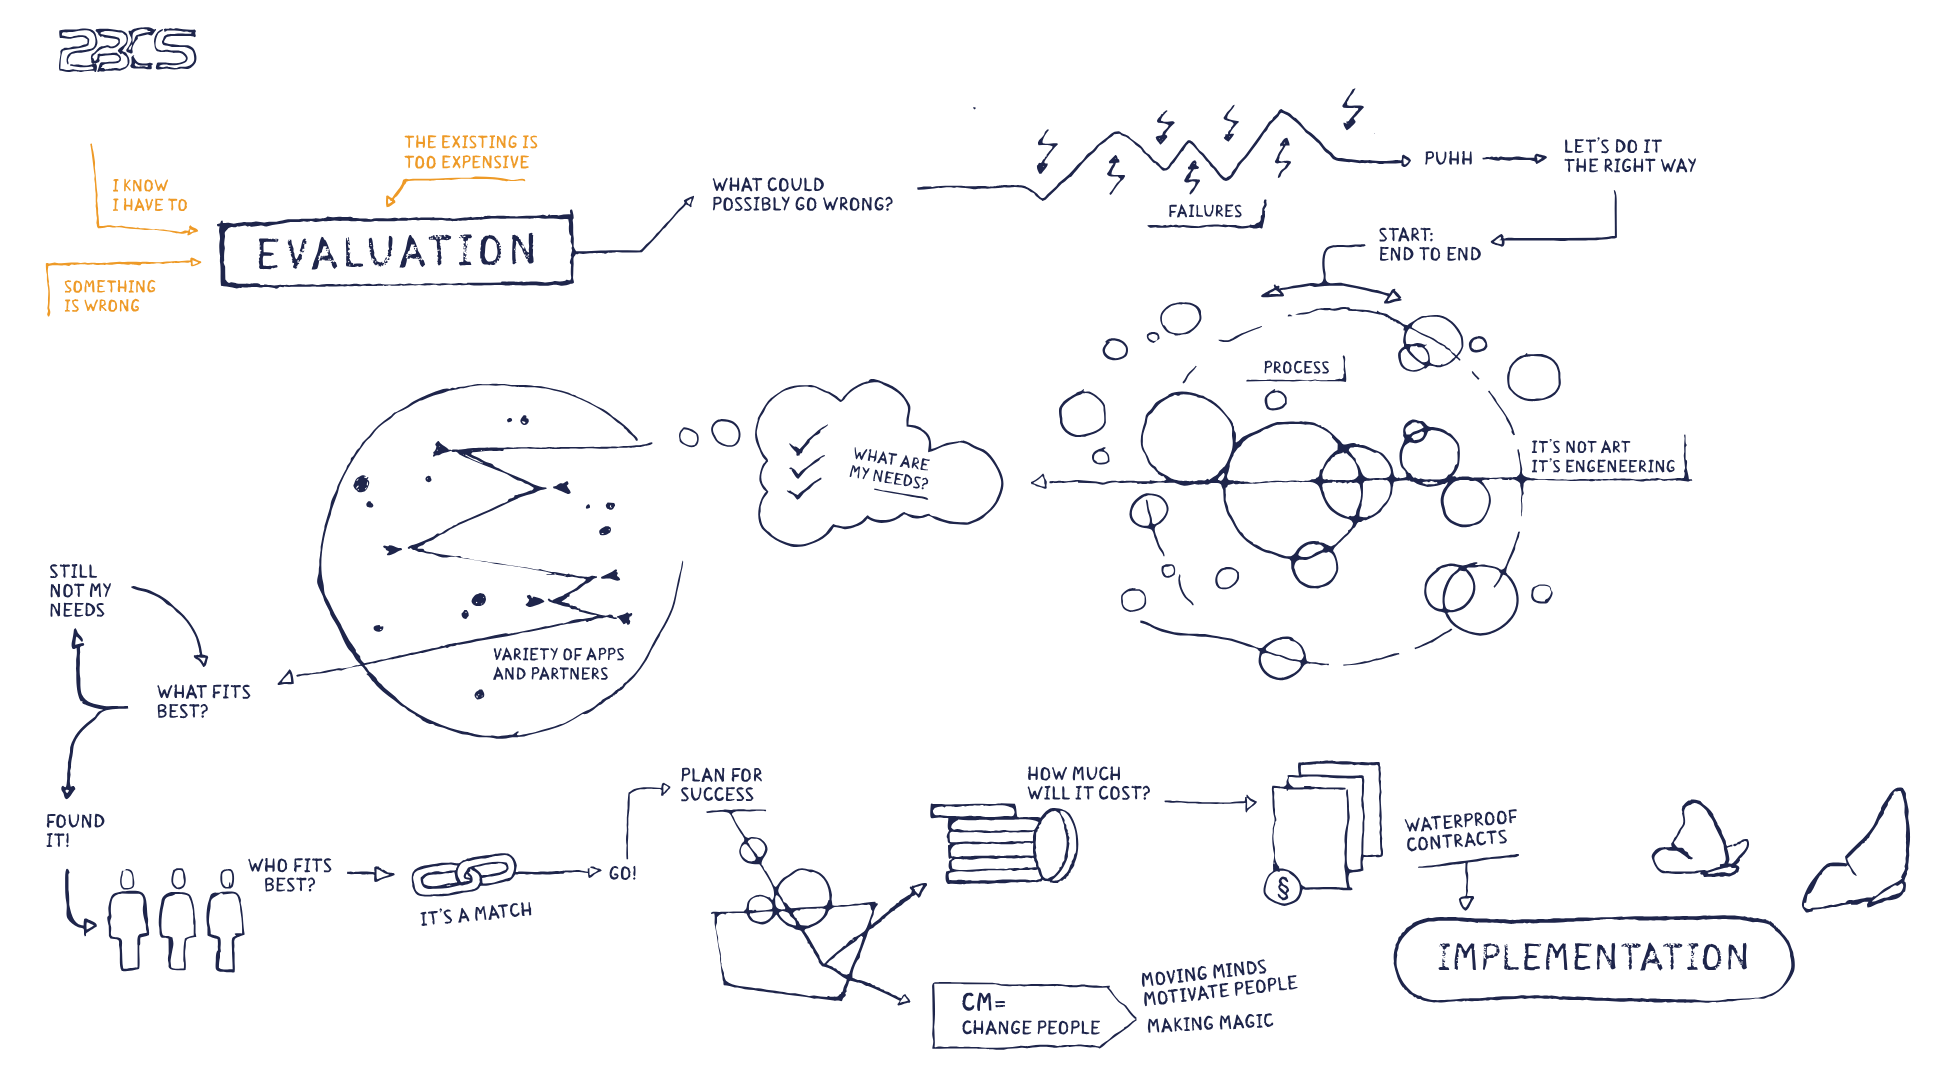 2BCS
THE EXISTING IS
TOO EXPENSIVE
I KNOW
I HAVE TO
SOMETHING
IS WRONG
EVALUATION
WHAT COULD
POSSIBLY GO WRONG?
FAILURES
PUHH
LET'S DO IT
THE RIGHT WAY
START:
END TO END
PROCESS
IT'S NOT ART
IT'S ENGENEERING
WHAT ARE
MY NEEDS?
VARIETY OF APPS
AND PARTNERS
WHAT FITS
BEST?
STILL
NOT MY
NEEDS
FOUND
IT!
WHO FITS
BEST?
IT'S A MATCH
GO!
PLAN FOR
SUCCESS
HOW MUCH
WILL IT COST?
CM=
CHANGE PEOPLE
MOVING MINDS
MOTIVATE PEOPLE
MAKING MAGIC
§
WATERPROOF
CONTRACTS
IMPLEMENTATION